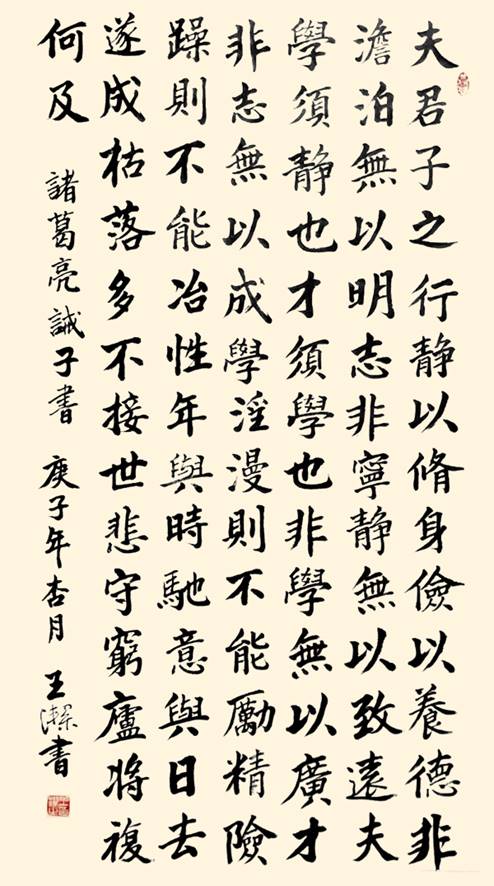 夫君子之行静以脩身儉以養德非
澹泊無以明志非寧静無以致遠夫
學須静也才須學也非學無以廣才
非志無以成學淫漫則不能勵精險
躁則不能冶性年與時馳意與日去
遂成枯落多不接世悲守窮廬將複
何及
諸葛亮誡子書 庚子年杏月 王書